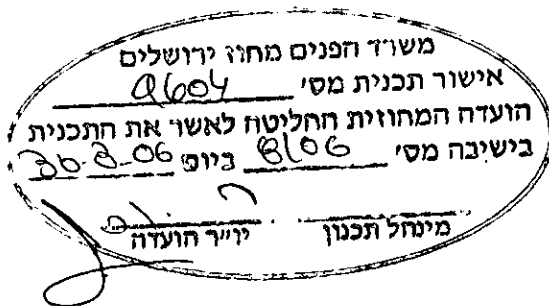 משרד הפנים מחוז ירושלים
אישור תכנית מס' 9604
הועדה המחוזית החליטה לאשר את התכנית
בישיבה מס' 8/06 ביום 30-8-06
מינהל תכנון יו"ר הועדה